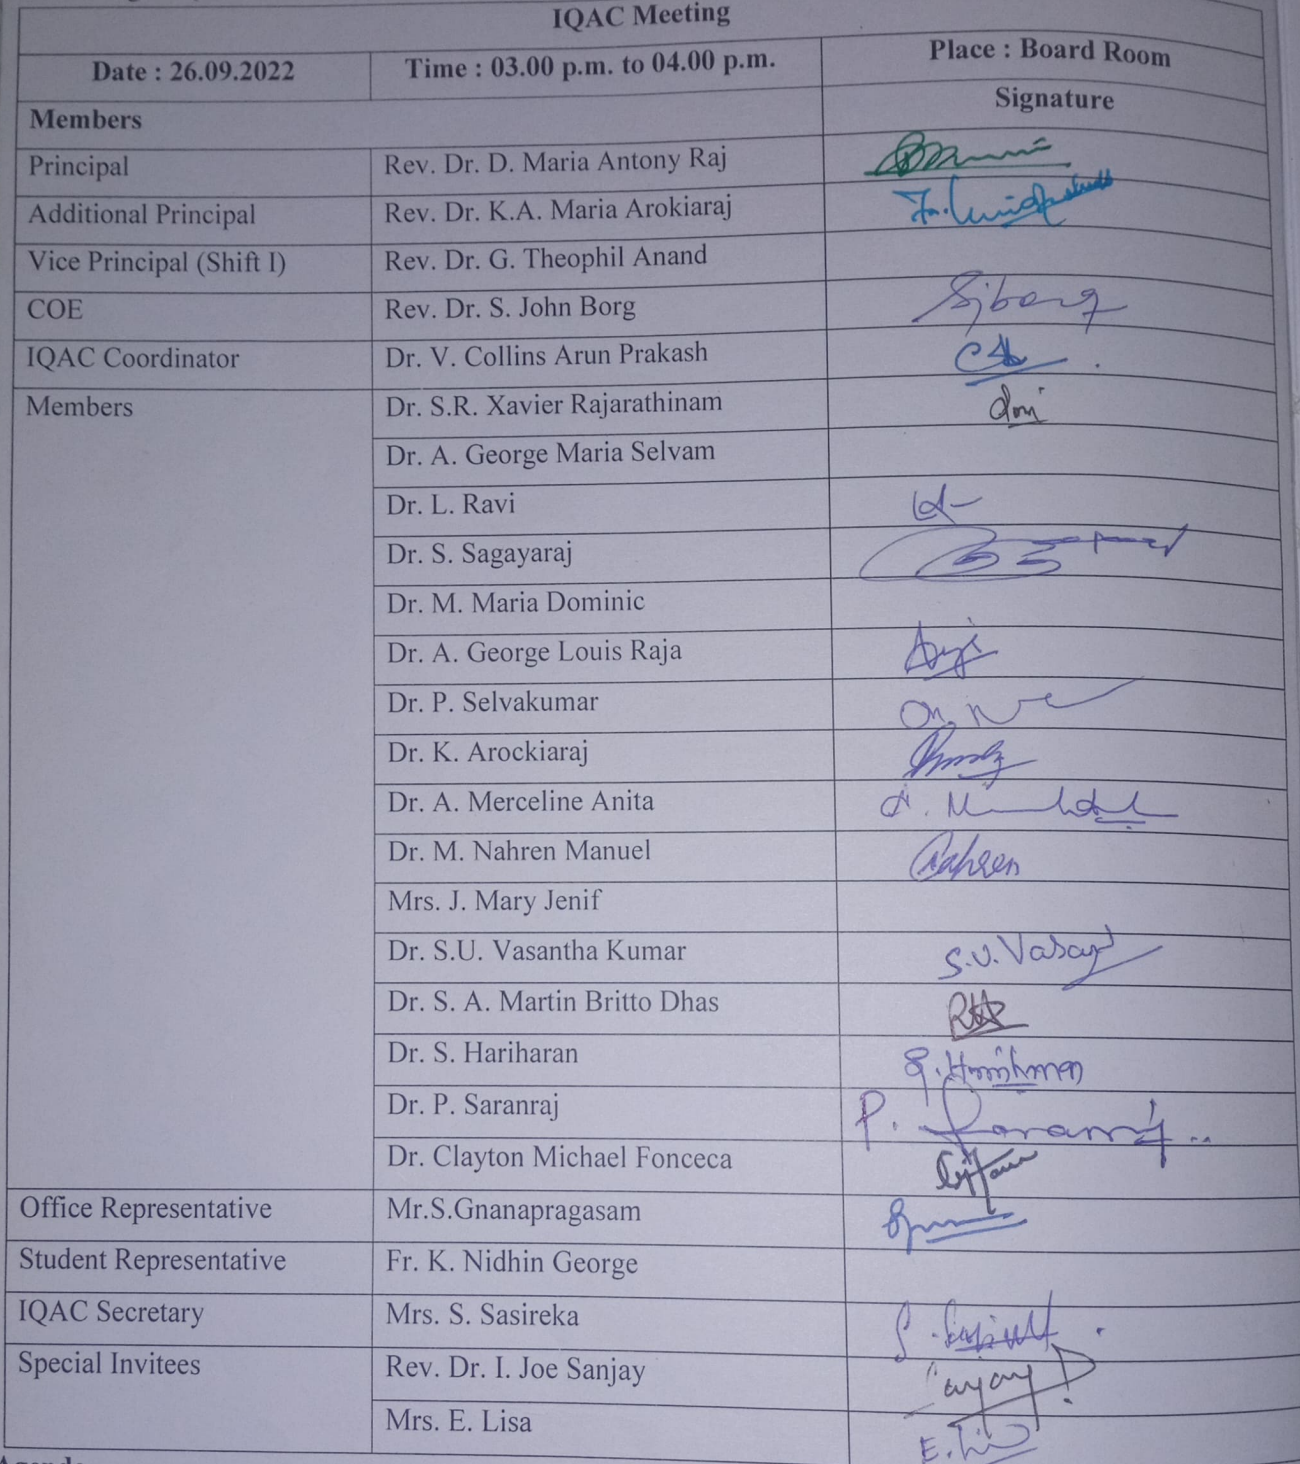 IQAC Meeting
Date : 26.09.2022 Time : 03.00 p.m. to 04.00 p.m. Place : Board Room
Members Signature
Principal Rev. Dr. D. Maria Antony Raj
Additional Principal Rev. Dr. K.A. Maria Arokiaraj
Vice Principal (Shift I) Rev. Dr. G. Theophil Anand
COE Rev. Dr. S. John Borg Sjborg
IQAC Coordinator Dr. V. Collins Arun Prakash
Members Dr. S.R. Xavier Rajarathinam
Dr. A. George Maria Selvam
Dr. L. Ravi
Dr. S. Sagayaraj
Dr. M. Maria Dominic
Dr. A. George Louis Raja
Dr. P. Selvakumar
Dr. K. Arockiaraj
Dr. A. Merceline Anita
Dr. M. Nahren Manuel Nahren
Mrs. J. Mary Jenif
Dr. S.U. Vasantha Kumar S.U. Vasan
Dr. S. A. Martin Britto Dhas
Dr. S. Hariharan
Dr. P. Saranraj P. Saranraj
Dr. Clayton Michael Fonceca
Office Representative Mr.S.Gnanapragasam
Student Representative Fr. K. Nidhin George
IQAC Secretary Mrs. S. Sasireka
Special Invitees Rev. Dr. I. Joe Sanjay
Mrs. E. Lisa